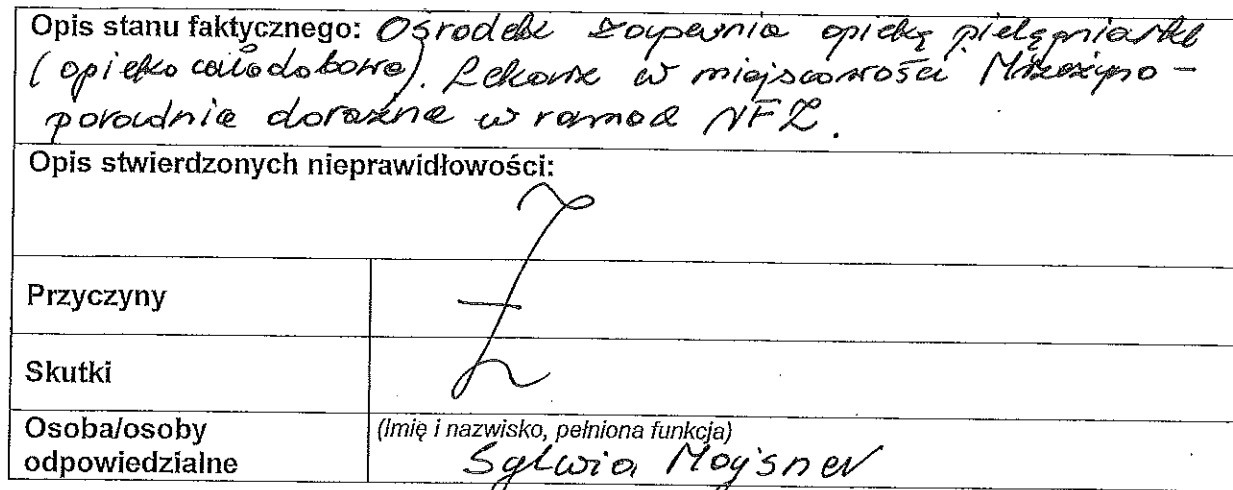 Opis stanu faktycznego: Ośrodek zapewnia opiekę pielęgniarki
(opieka całodobowa). Lekarze w miejscowości Mrzeżyno -
poradnia doraźna w ramach NFZ.
Opis stwierdzonych nieprawidłowości:
Przyczyny
Skutki
Osoba/osoby
odpowiedzialne
(Imię i nazwisko, pełniona funkcja)
Sylwia Mojsner